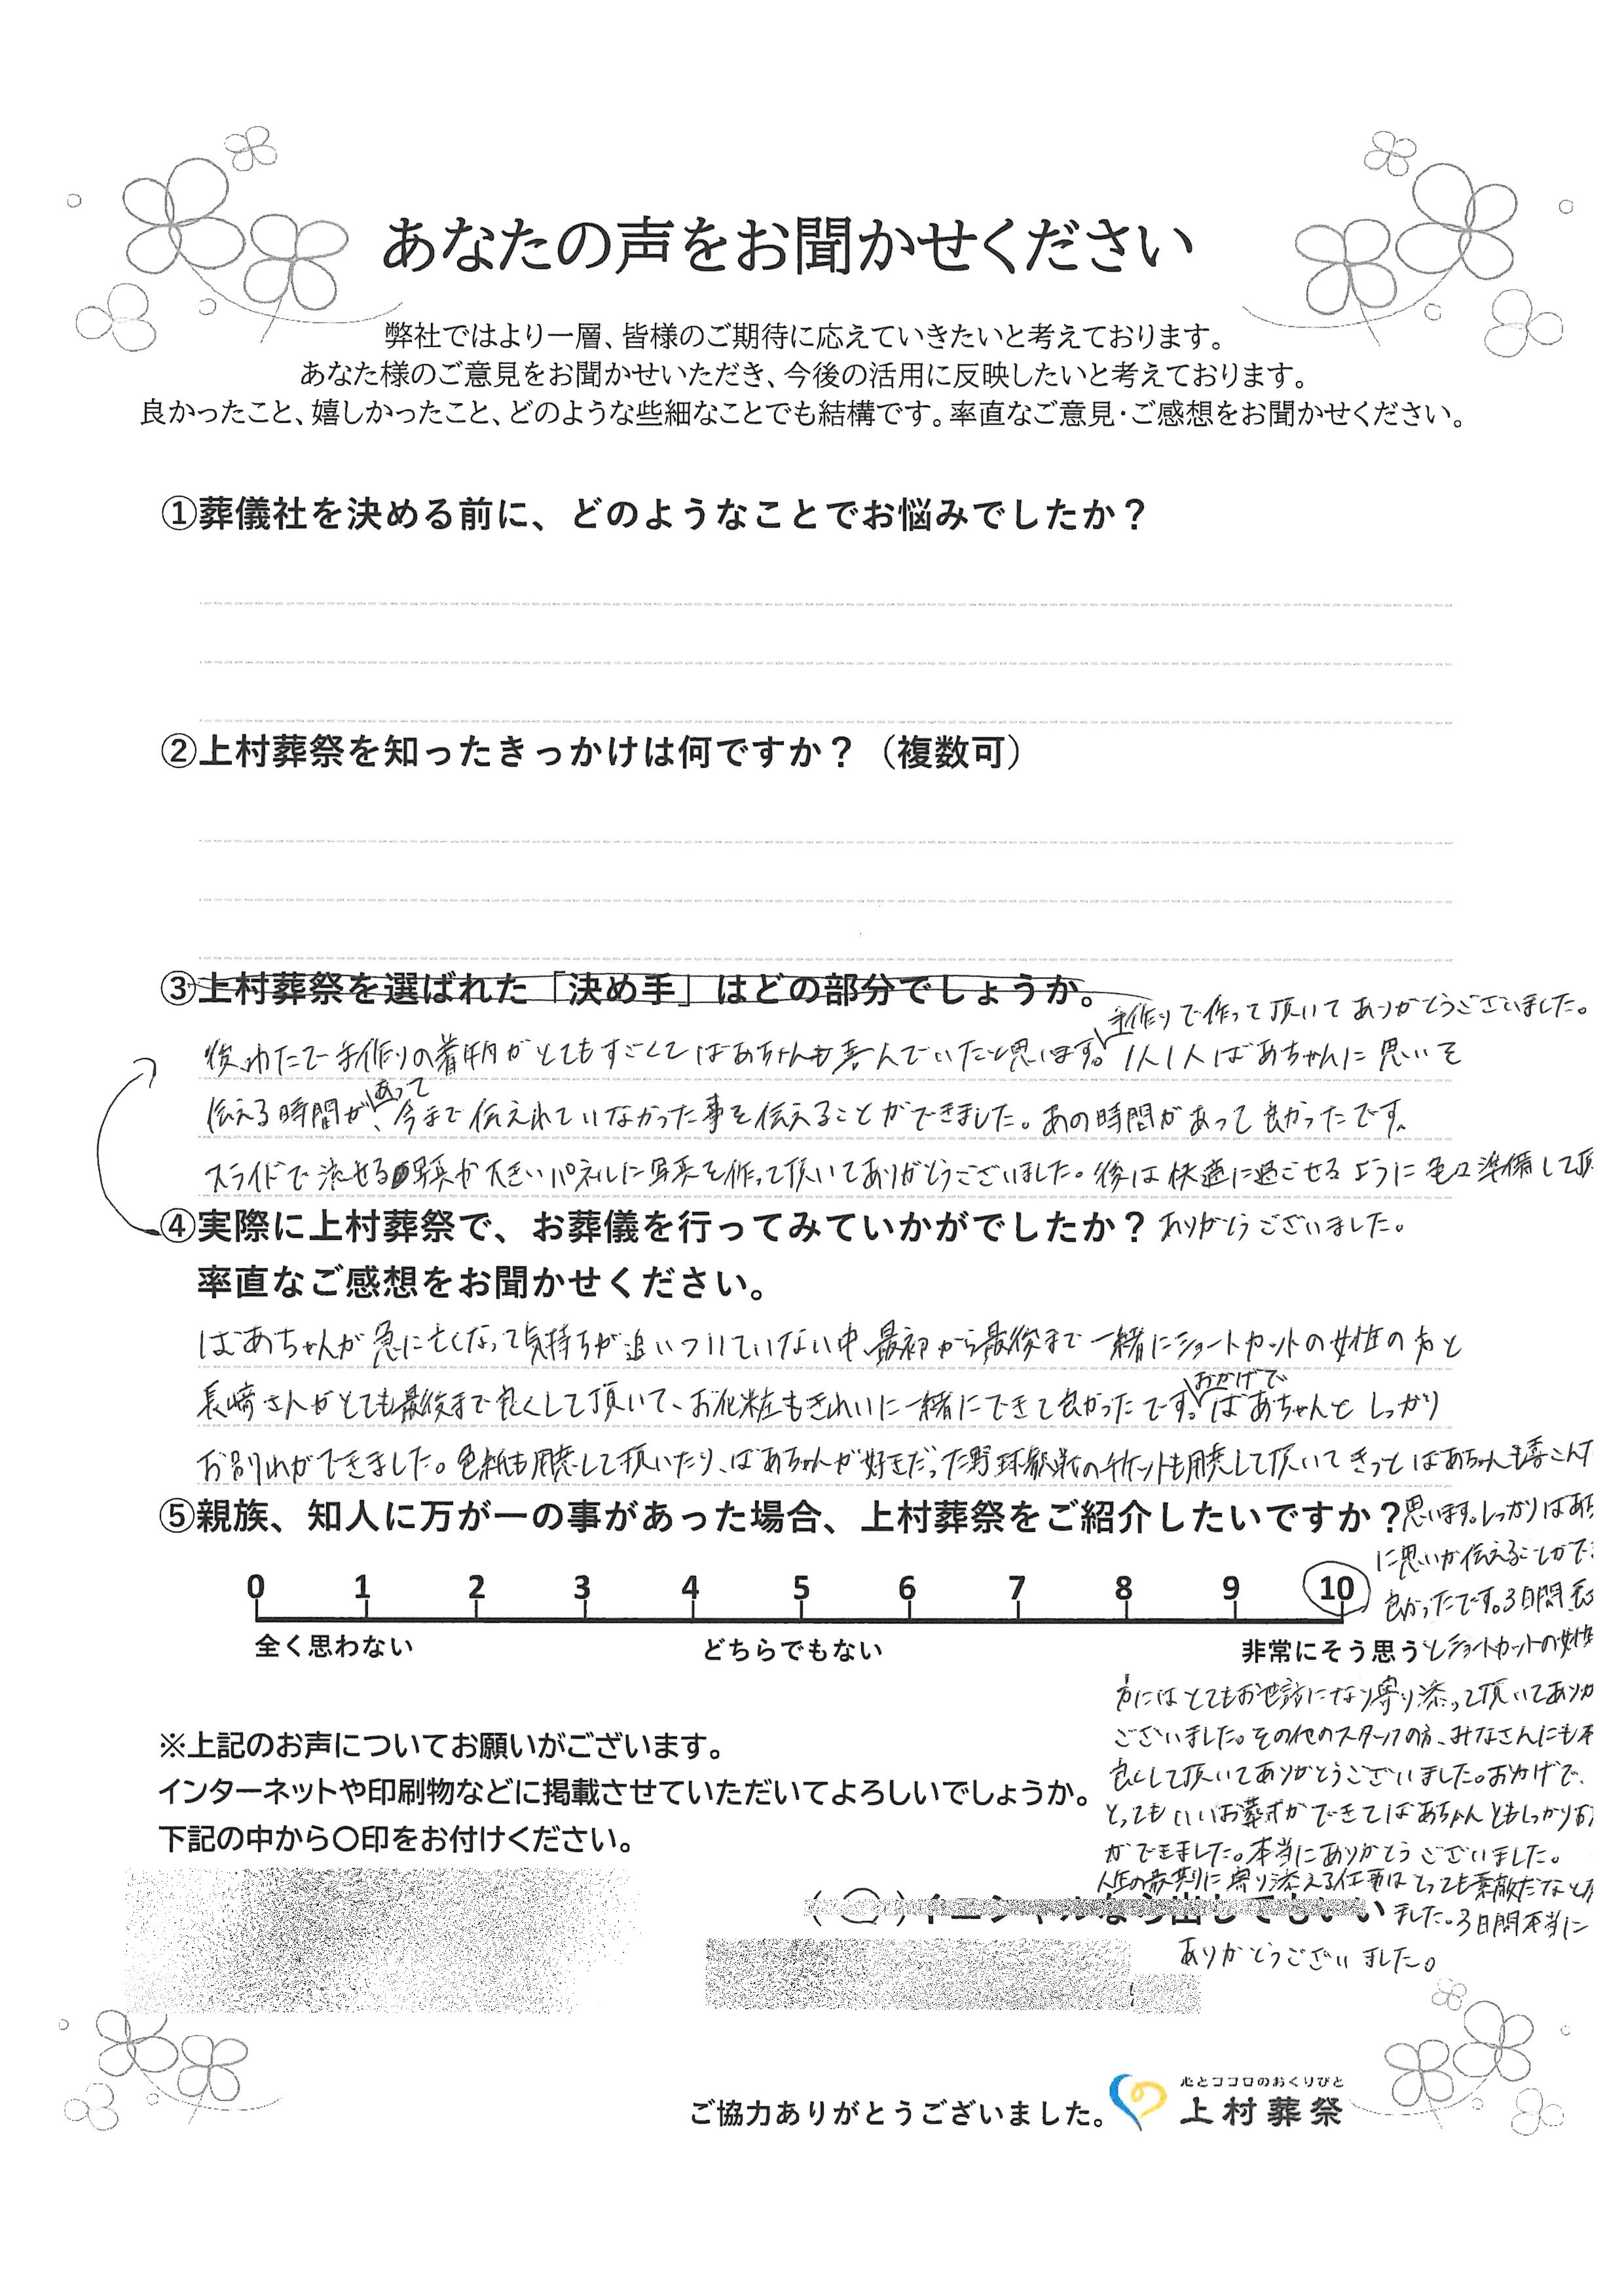 あなたの声をお聞かせください
弊社ではより一層、皆様のご期待に応えていきたいと考えております。
あなた様のご意見をお聞かせいただき、今後の活用に反映したいと考えております。
良かったこと、嬉しかったこと、どのような些細なことでも結構です。率直なご意見・ご感想をお聞かせください。
①葬儀社を決める前に、どのようなことでお悩みでしたか？
②上村葬祭を知ったきっかけは何ですか？（複数可）
③上村葬祭を選ばれた「決め手」はどの部分でしょうか。
手作りで作って頂いてありがとうございました。
後、わたで手作りの着物がとてもすごくてばあちゃんも喜んでいたと思います。1人1人ばあちゃんに思いを
あって
伝える時間が、今まで伝えれていなかった事を伝えることができました。あの時間があって良かったです。
スライドで流せる写真か大きいパネルに写真を作って頂いてありがとうございました。後は快適に過ごせるように色々準備して頂
④実際に上村葬祭で、お葬儀を行ってみていかがでしたか？ありがとうございました。
率直なご感想をお聞かせください。
ばあちゃんが急に亡くなって気持ちが追いついていない中、最初から最後まで一緒にショートカットの女性の方と
おかげで
長崎さんがとても最後まで良くして頂いて、お化粧もきれいに一緒にできて良かったです。ばあちゃんとしっかり
お別れができました。色紙も用意して頂いたり、ばあちゃんが好きだった野球観戦のチケットも用意して頂いてきっとばあちゃんも喜こんで
⑤親族、知人に万が一の事があった場合、上村葬祭をご紹介したいですか？思います。しっかりばあち
に思いが伝えることができ
0 1 2 3 4 5 6 7 8 9 10
良かったです。3日間長
全く思わない どちらでもない 非常にそう思うとショートカットの女性
方にはとてもお世話になり寄り添って頂いてありが
ございました。その他のスタッフの方、みなさんにも本
良くして頂いてありがとうございました。おかげで、
とってもいいお葬式ができてばあちゃんともしっかりお
ができました。本当にありがとうございました。
人生の最期に寄り添える仕事はとっても素敵だなと
ました。3日間本当に
ありがとうございました。
※上記のお声についてお願いがございます。
インターネットや印刷物などに掲載させていただいてよろしいでしょうか。
下記の中から〇印をお付けください。
(〇)イニシャルなら出してもいい
ご協力ありがとうございました。
心とココロのおくりびと
上村葬祭